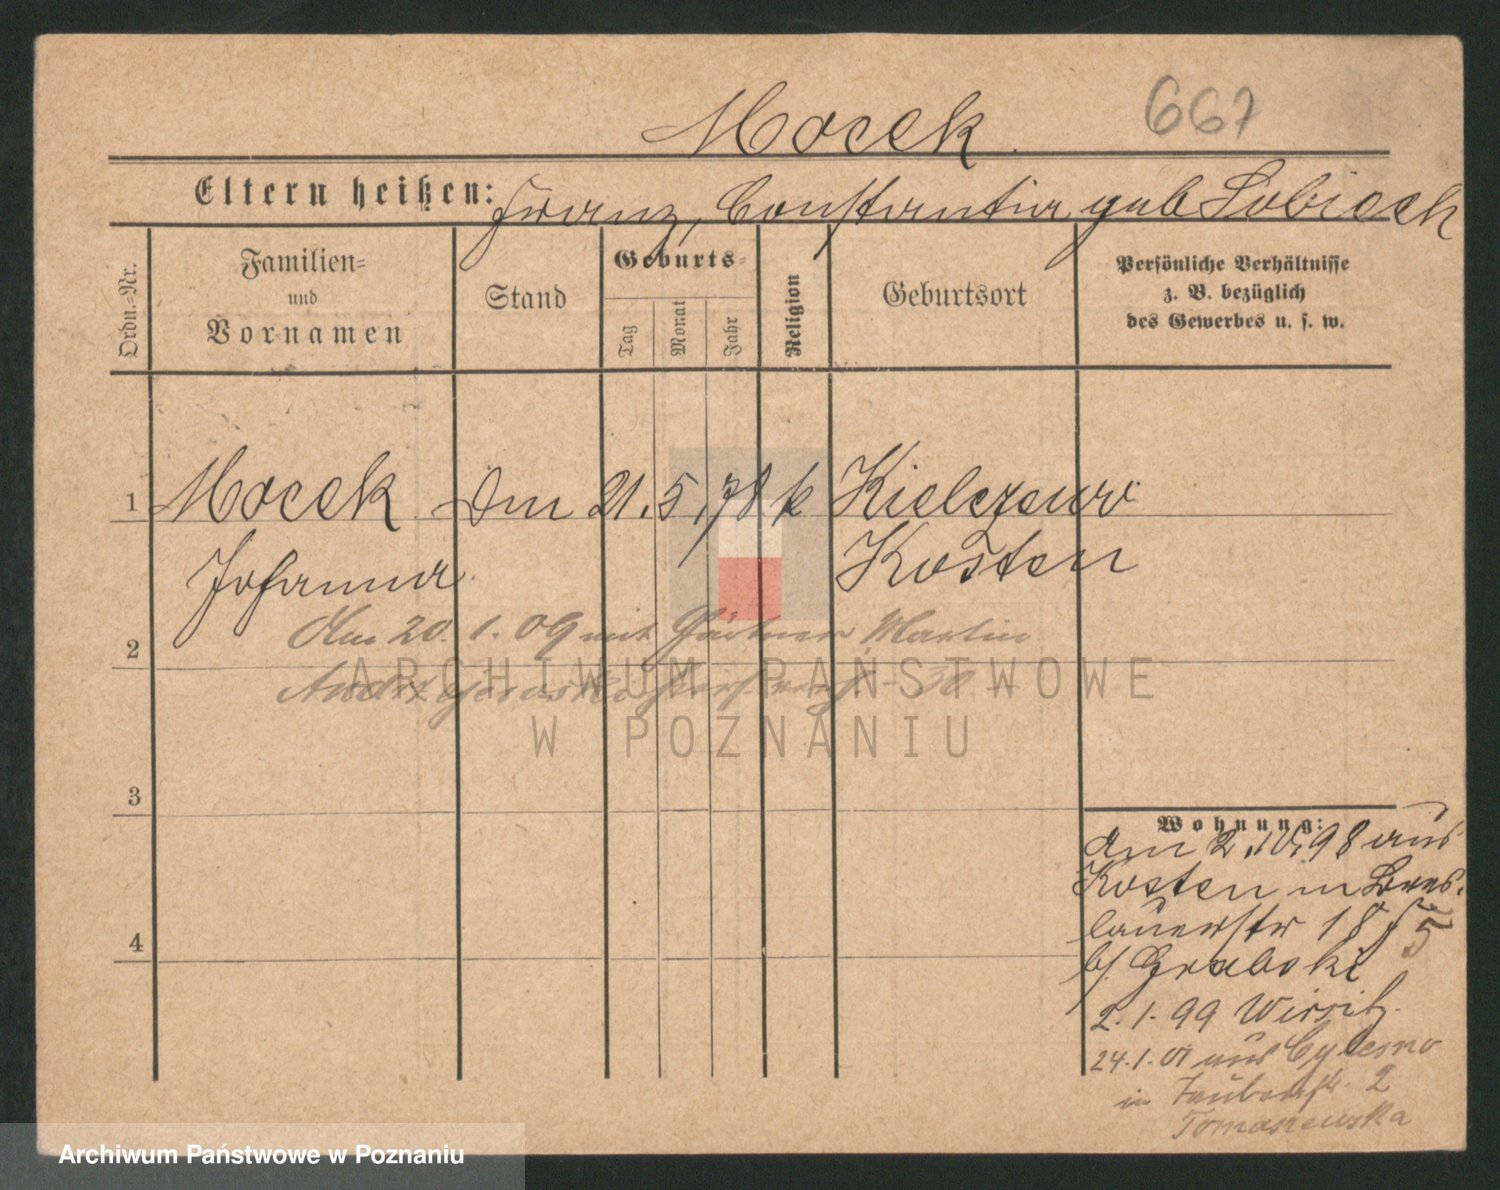 Mocek
667
Eltern heißen: Franz, Constantia geb Sobieck
Ordn.=Nr.
Familien=
und
Vornamen
Stand
Geburts=
Tag
Monat
Jahr
Religion
Geburtsort
Persönliche Verhältnisse
z. B. bezüglich
des Gewerbes u. s. w.
1 Mocek 21. 5. 78 k Kielczewo
Johanna Kosten
2 Am 20. 1. 09 mit Gärtner Martin
ARCHIWUM PAŃSTWOWE
W POZNANIU
3
Wohnung:
am 2.10.98 aus
Kosten in Bres-
lauerstr 18
5
b/ Grabski
2. 1. 99 Wirsitz.
24.1.01 aus
in Taubenstr. 2
Tomaszewska
4
Archiwum Państwowe w Poznaniu